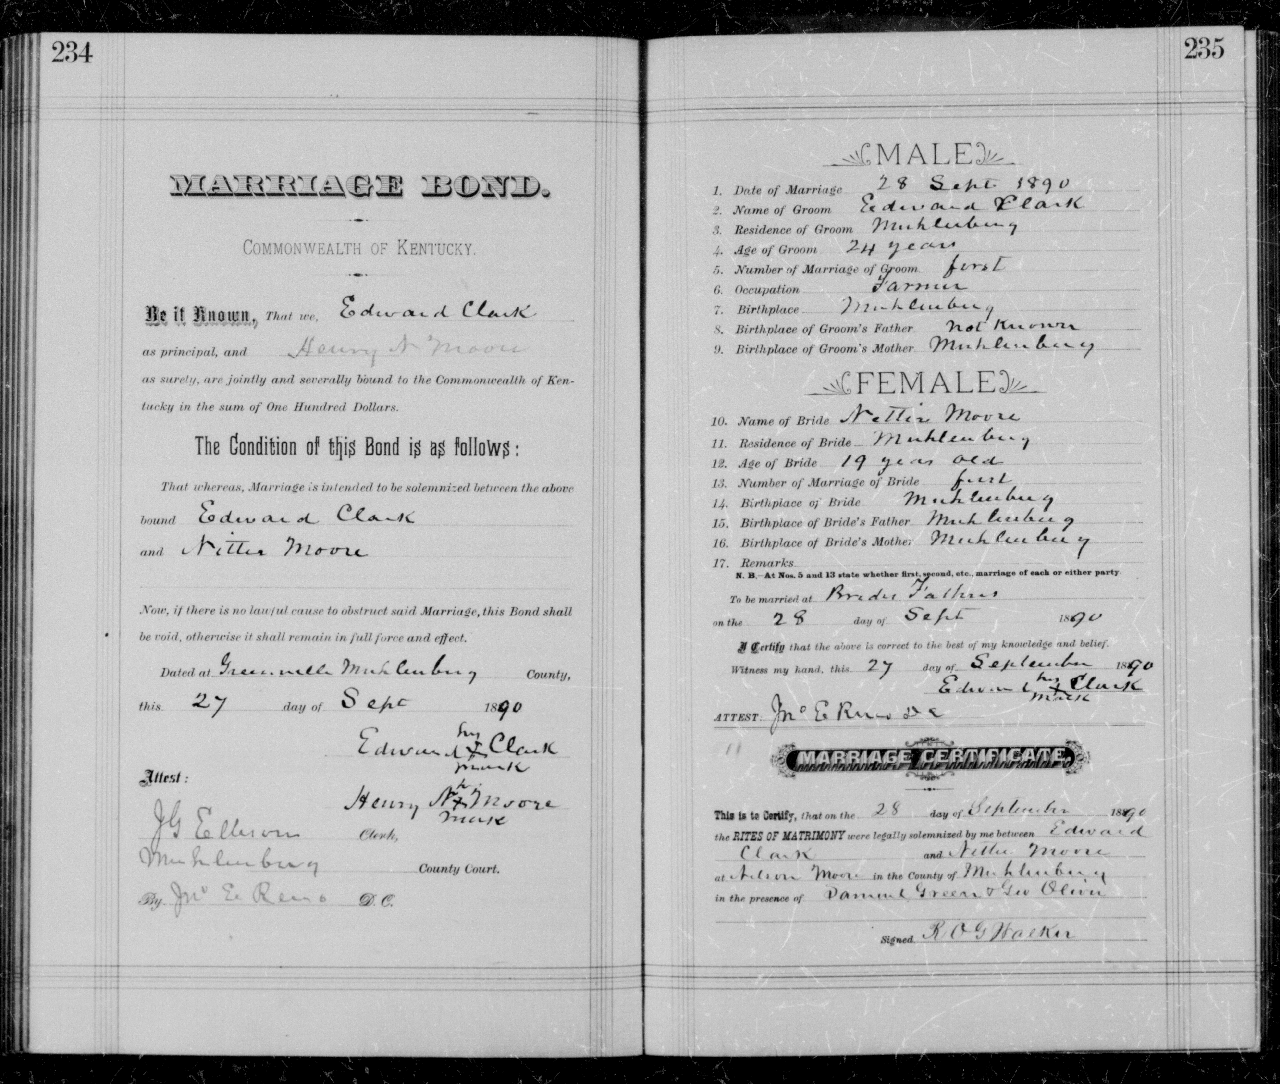 234
MARRIAGE BOND.
COMMONWEALTH OF KENTUCKY.
Be it Known, That we, Edward Clark
as principal, and Henry N Moore
as surety, are jointly and severally bound to the Commonwealth of Ken-
tucky in the sum of One Hundred Dollars.
The Condition of this Bond is as follows:
That whereas, Marriage is intended to be solemnized between the above
bound Edward Clark
and Nittie Moore
Now, if there is no lawful cause to obstruct said Marriage, this Bond shall
be void, otherwise it shall remain in full force and effect.
Dated at Greenville Muhlenburg County,
this 27 day of Sept 1890
his
Edward X Clark
mark
Attest:
his
Henry N X Moore
mark
JG Ellison Clerk,
Muhlenburg County Court.
By Jno E Reno D.C.
235
MALE
1. Date of Marriage 28 Sept 1890
2. Name of Groom Edward Clark
3. Residence of Groom Muhlenburg
4. Age of Groom 24 years
5. Number of Marriage of Groom first
6. Occupation Farmer
7. Birthplace Muhlenburg
8. Birthplace of Groom's Father not known
9. Birthplace of Groom's Mother Muhlenburg
FEMALE
10. Name of Bride Nettie Moore
11. Residence of Bride Muhlenburg
12. Age of Bride 19 years old
13. Number of Marriage of Bride first
14. Birthplace of Bride Muhlenburg
15. Birthplace of Bride's Father Muhlenburg
16. Birthplace of Bride's Mother Muhlenburg
17. Remarks
N. B.—At Nos. 5 and 13 state whether first, second, etc., marriage of each or either party
To be married at Brides Fathers
on the 28 day of Sept 1890
I Certify that the above is correct to the best of my knowledge and belief.
Witness my hand, this 27 day of September 1890
his
Edward X Clark
mark
ATTEST: Jno E Reno DC
MARRIAGE CERTIFICATE.
This is to Certify, that on the 28 day of September 1890
the RITES OF MATRIMONY were legally solemnized by me between Edward
Clark and Nettie Moore
at Nelson Moore in the County of Muhlenburg
in the presence of Samuel Green & Geo Oliver
Signed R O G Walker